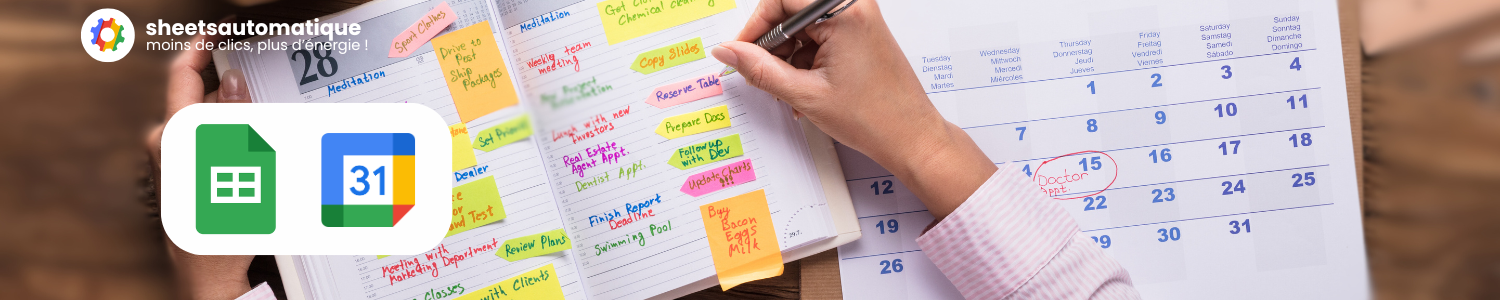 sheetsautomatique
moins de clics, plus d'énergie !
31
28
Meditation
Sport Clothes
Drive to
Post
Ship
Packages
Set
Dealer
and Test
Meeting with
Marketing Department
Review Plans
Classes
with Clients
Meditation
Weekly team
meeting
Lunch with new
Investors
Real Estate
Agent Appt.
Dentist Appt.
Finish Report
Deadline
Swimming Pool
Chemical cleaning
Copy Slides
Reserve Table
Prepare Docs
Follow up
with Dev
Update Charts
!!!
Buy
Bacon
Eggs
Milk
Tuesday
Dienstag
Mardi
Martes
Wednesday
Mittwoch
Mercredi
Miércoles
Thursday
Donnerstag
Jeudi
Jueves
Friday
Freitag
Vendredi
Viernes
Saturday
Samstag
Samedi
Sábado
Sunday
Sonntag
Dimanche
Domingo
1 2 3 4
7 8 9 10 11
12 4 15 16 17 18
Doctor
Appt.
19 22 23 24 25
26 29 30 31